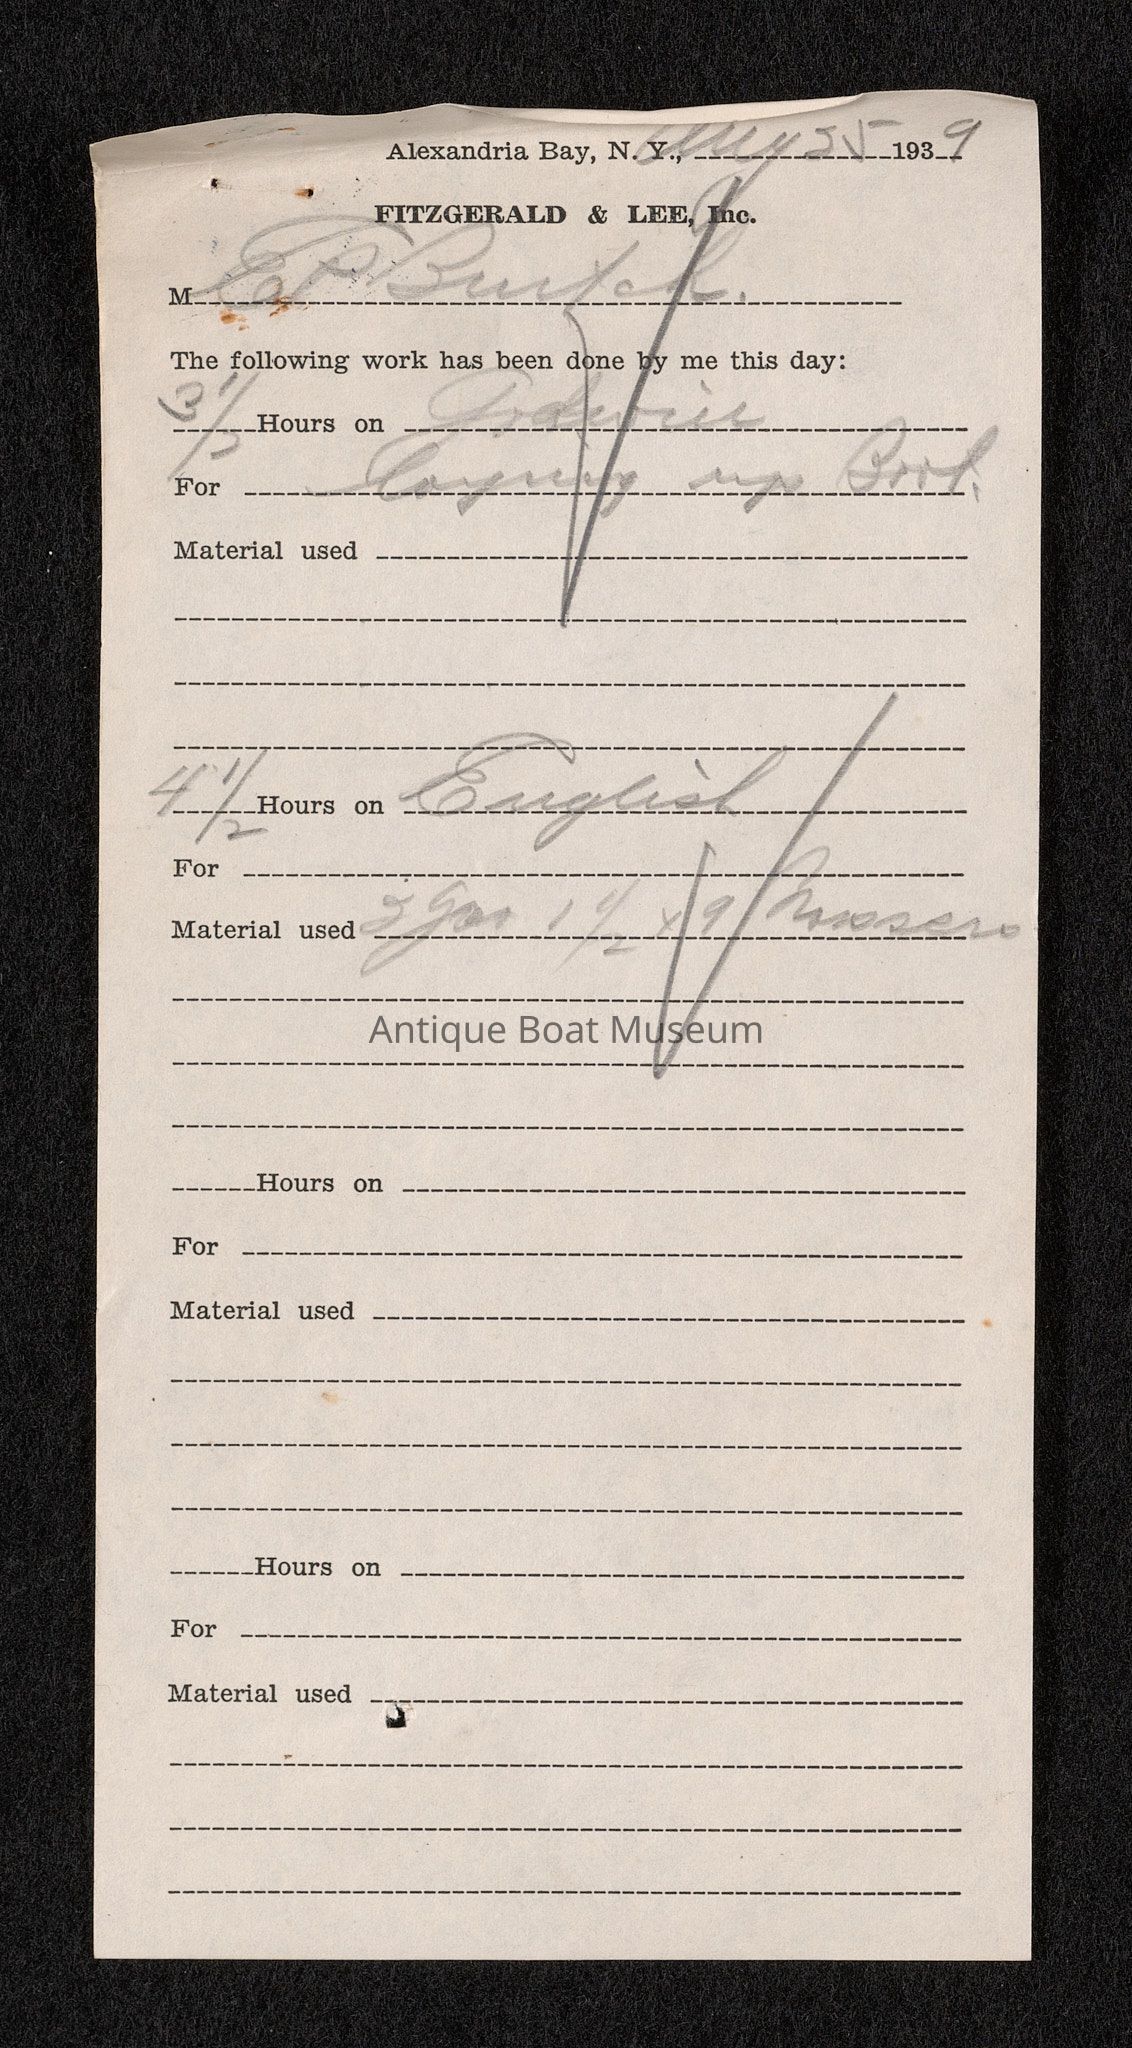 Alexandria Bay, N. Y., Aug 25 1939
FITZGERALD & LEE, Inc.
M E P Burtch.
The following work has been done by me this day:
3 1/2 Hours on
For Laying up Boat.
Material used
4 1/2 Hours on English
For
Material used 2 1 1/2 x 9
Antique Boat Museum
Hours on
For
Material used
Hours on
For
Material used